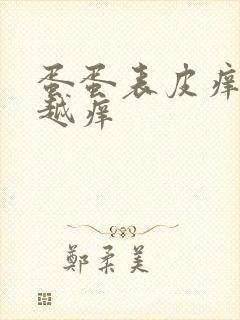 蛋蛋表皮痒
越痒
鄭柔美